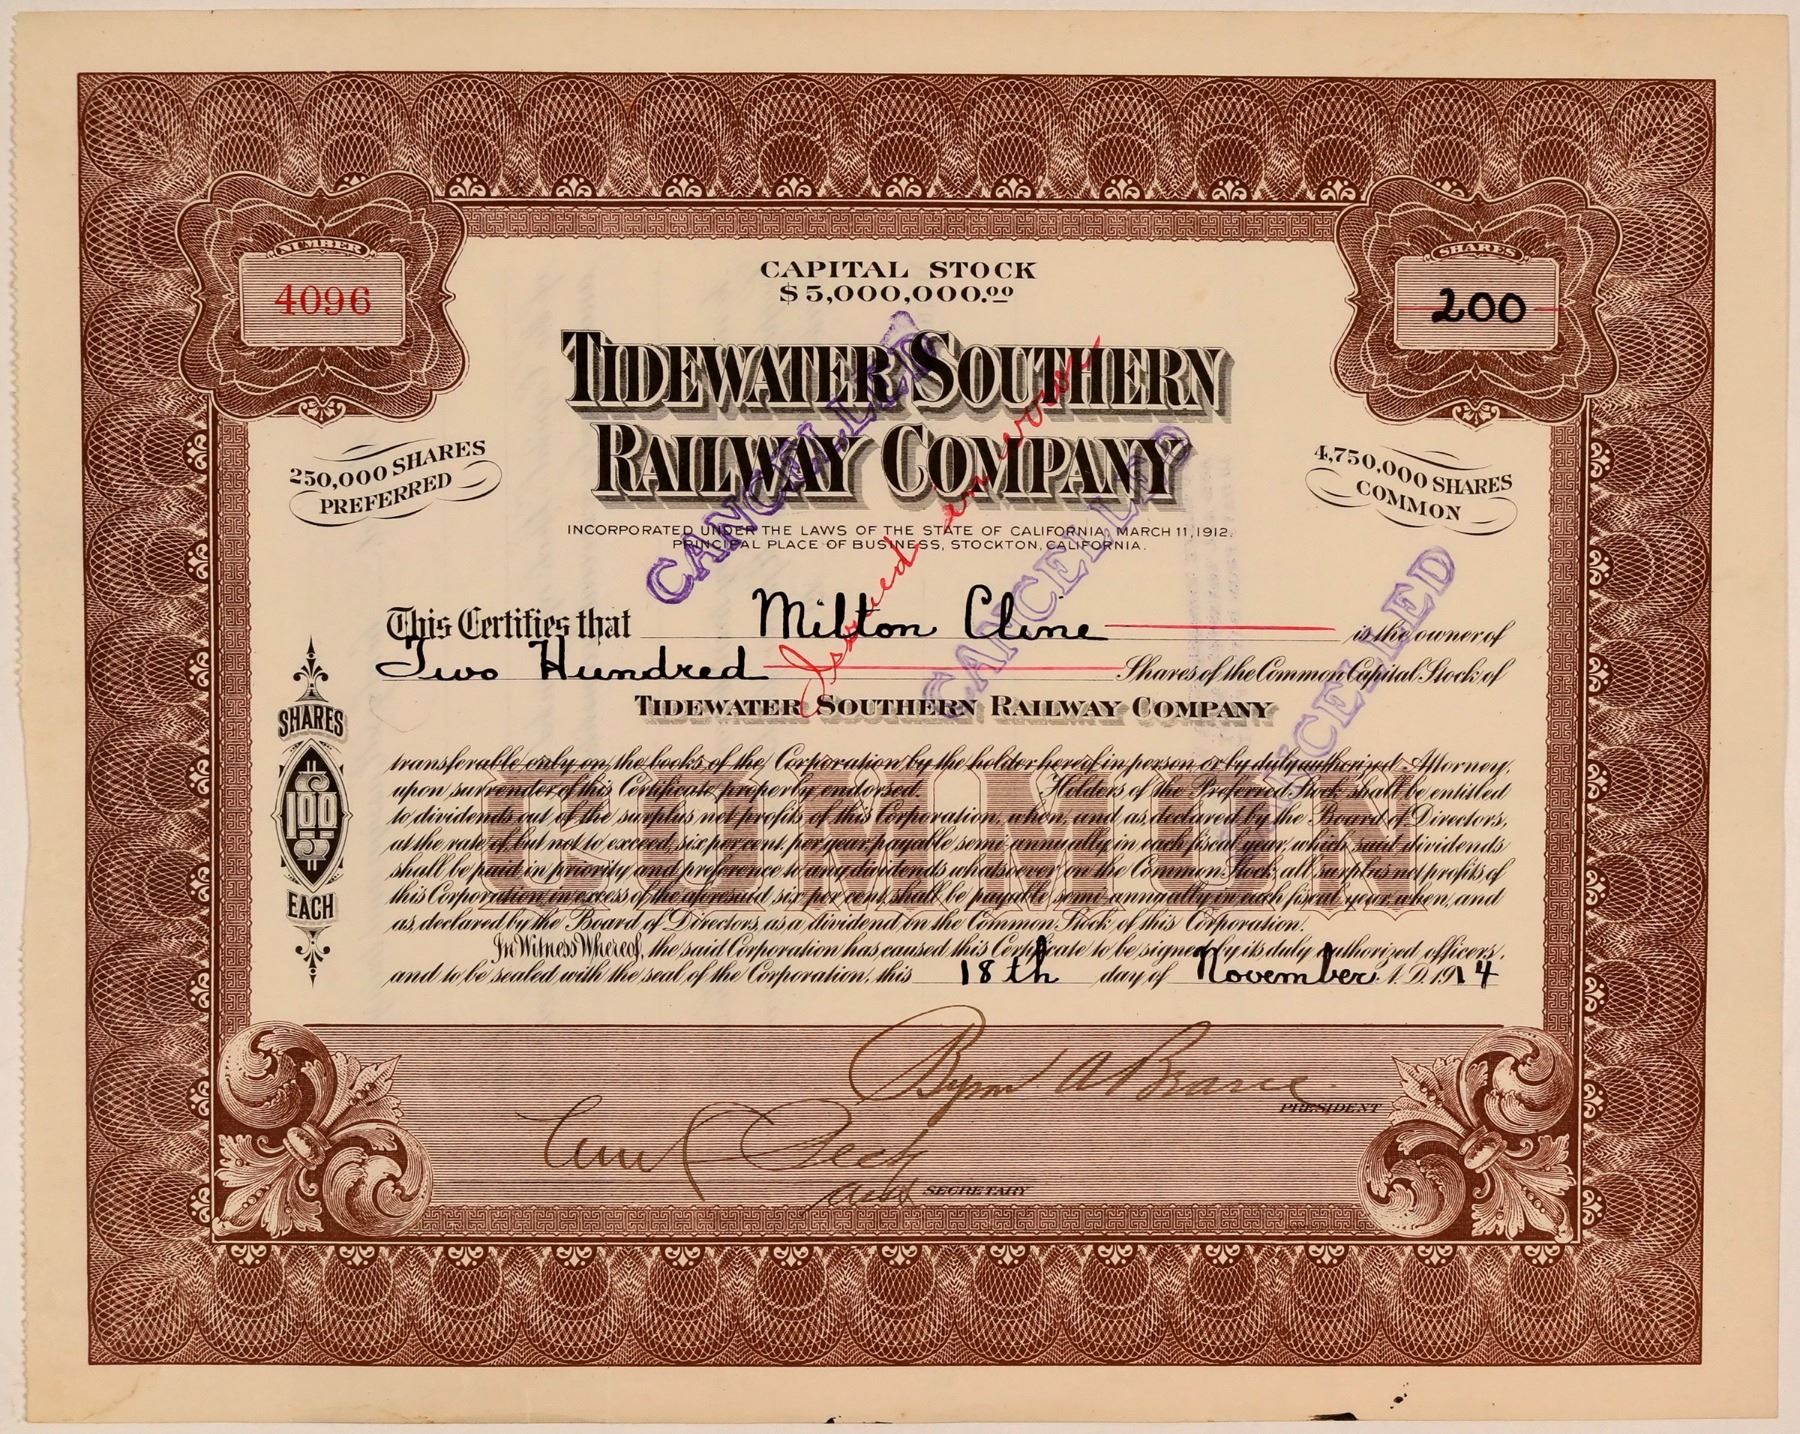 NUMBER
4096
SHARES
200
CAPITAL STOCK
$5,000,000.00
TIDEWATER SOUTHERN
RAILWAY COMPANY
250,000 SHARES
PREFERRED
4,750,000 SHARES
COMMON
INCORPORATED UNDER THE LAWS OF THE STATE OF CALIFORNIA, MARCH 11, 1912.
PRINCIPAL PLACE OF BUSINESS, STOCKTON, CALIFORNIA.
CANCELLED
CANCELLED
CANCELLED
Issued in error
This Certifies that Milton Cline is the owner of
Two Hundred Shares of the Common Capital Stock of
TIDEWATER SOUTHERN RAILWAY COMPANY
SHARES
$1.00
EACH
COMMON
transferable only on the books of the Corporation by the holder hereof in person or by duly authorized Attorney,
upon surrender of this Certificate properly endorsed. Holders of the Preferred Stock shall be entitled
to dividends out of the surplus net profits of this Corporation, when, and as, declared by the Board of Directors,
at the rate of, but not to exceed, six per cent. per year, payable semi-annually in each fiscal year, which said dividends
shall be paid in priority and preference to any dividends whatsoever on the Common Stock; all surplus net profits of
this Corporation in excess of the aforesaid six per cent. shall be payable semi-annually in each fiscal year, when, and
as, declared by the Board of Directors, as a dividend on the Common Stock of this Corporation.
In Witness Whereof, the said Corporation has caused this Certificate to be signed by its duly authorized officers,
and to be sealed with the seal of the Corporation, this 18th day of November A.D. 1914
Byron A Bearce
PRESIDENT
Peck
SECRETARY